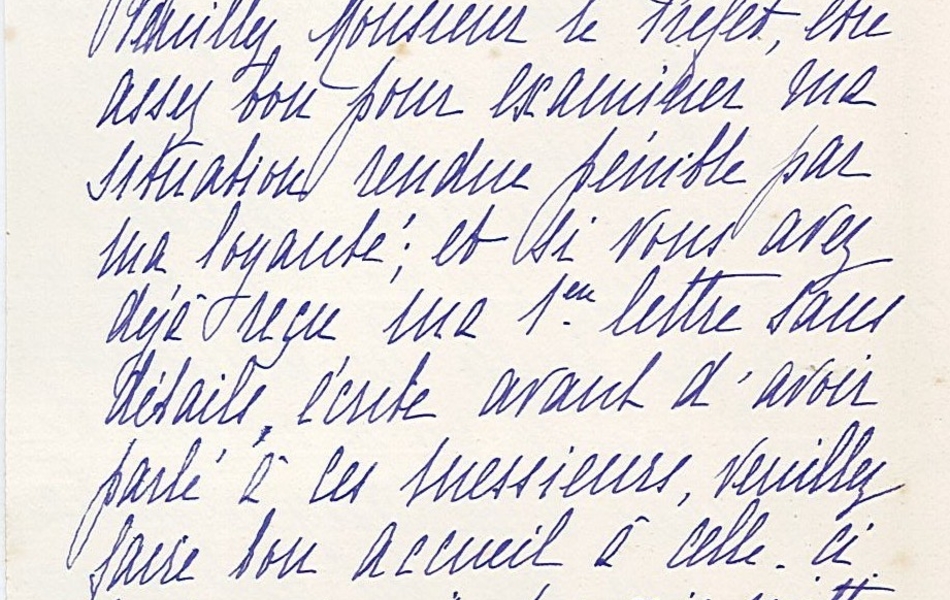 Veuillez, Monsieur le Préfet, être
assez bon pour examiner ma
situation rendue pénible par
ma loyauté; et si vous avez
déjà reçu ma 1ère lettre sans
détails, écrite avant d'avoir
parlé à ces messieurs, veuillez
faire bon accueil à celle-ci